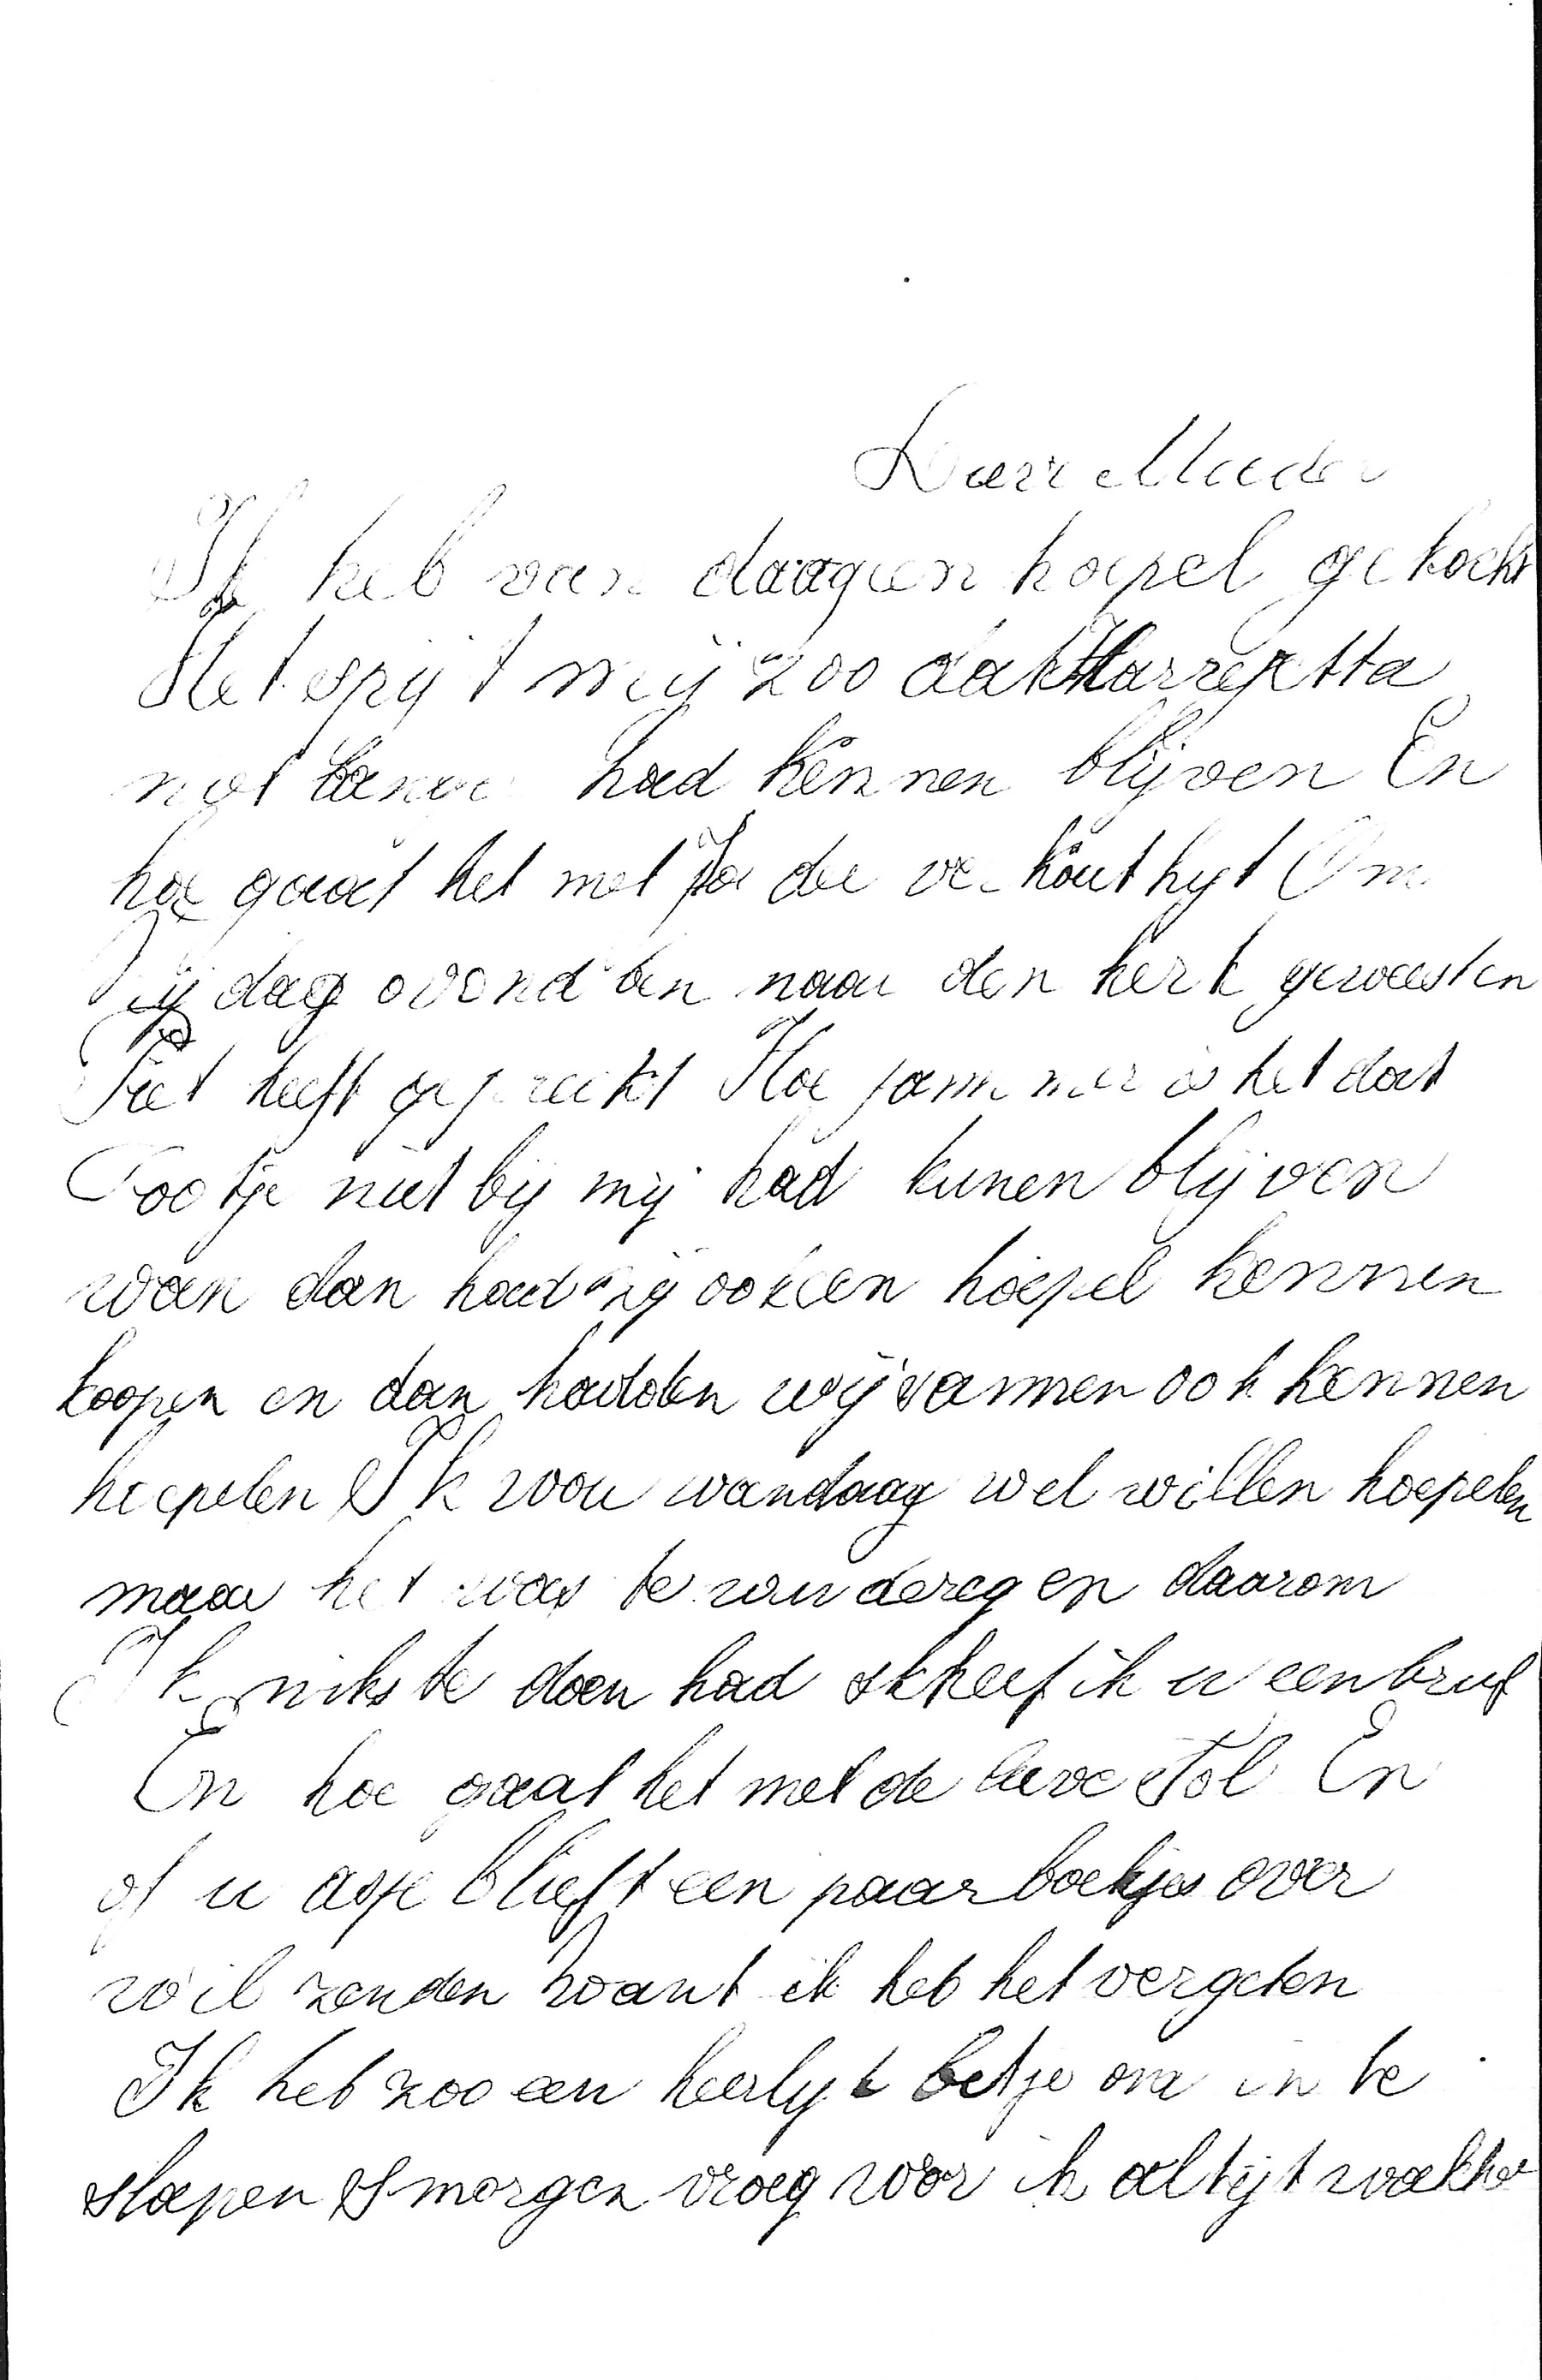 Ik heb van daageen hoepel gekocht
Het spijt mij zoo dat
niet had kennen blijven En
hoe gaat het met de
dag avond ben naar den kerk geweesten
Piet heeft gepreekt Hoe jammer is het dat
Cootje niet bij mij had kunen blijven
wan dan had zij ook een hoepel kennen
koopen en dan hadden wij samen ook kennen
hoepelen Ik wou vandaag wel willen hoepelen
maar het was te en daarom
Ik niks te doen had ik u een brief
En hoe gaat het met de lieve Tol En
of u asje blieft een paar boekjes over
wil zenden want ik heb het vergeten
Ik heb zoo een heerlijk betje om in te
slapen Smorgen vroeg wor ik altijt wakker